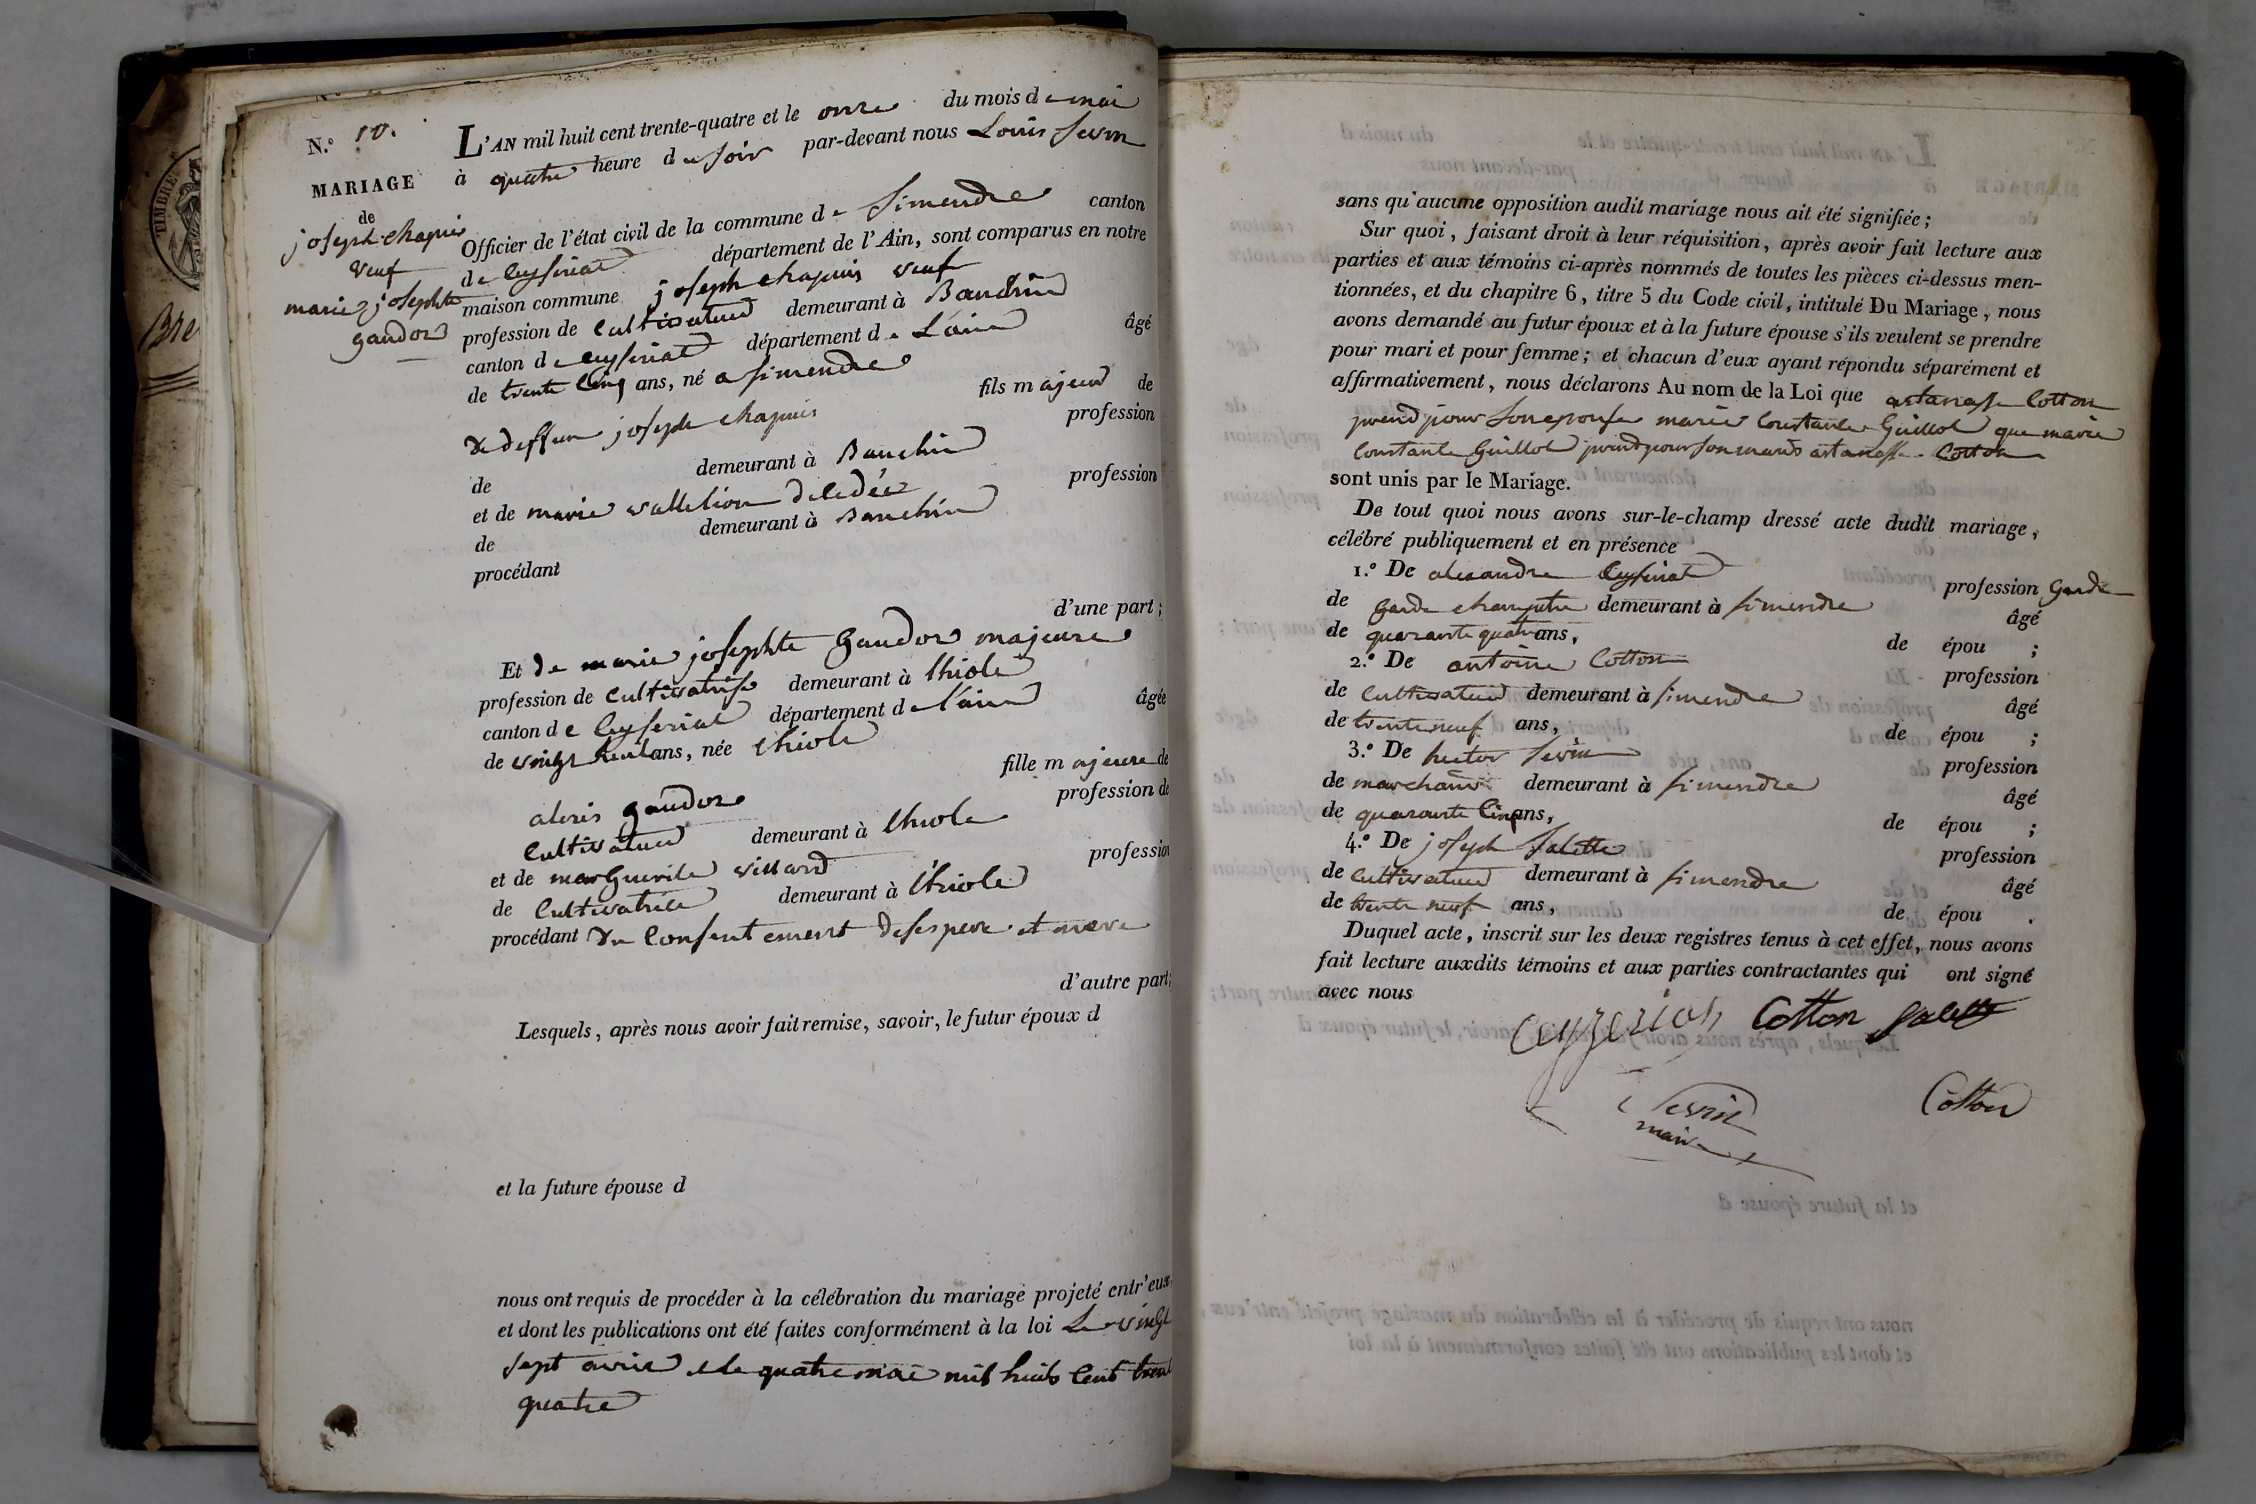 TIMBRE
Bre
N.º 10.
MARIAGE
de
joseph chapuis
veuf
marie josephte
gaudoz
L'AN mil huit cent trente-quatre et le onze du mois de mai
à quatre heure du soir par-devant nous Louis Sevin
Officier de l'état civil de la commune de Simendre canton
de Ceyseriat département de l'Ain, sont comparus en notre
maison commune joseph chapuis veuf
profession de cultivateur demeurant à
canton de Ceyseriat département de L'ain âgé
de trente Cinq ans, né a simendre
fils majeur de
de deffun joseph chapuis profession
de demeurant à
et de marie profession
de demeurant à
procédant
d'une part;
Et de marie josephte Gaudoz majeure
profession de cultivatrise demeurant à
canton de Ceyseriat département de l'ain âgée
de vingt huit ans, née
fille majeure de
alexis gaudoz profession de
Cultivateur demeurant à
et de marguerite villard profession
de Cultivatrice demeurant à
procédant du Consentement de ses pere et mere
d'autre part;
Lesquels, après nous avoir fait remise, savoir, le futur époux d
et la future épouse d
nous ont requis de procéder à la célébration du mariage projeté entr'eux
et dont les publications ont été faites conformément à la loi Le vingt
sept avril et le quatre mai mil huit Cent trente
quatre
sans qu'aucune opposition audit mariage nous ait été signifiée;
Sur quoi, faisant droit à leur réquisition, après avoir fait lecture aux
parties et aux témoins ci-après nommés de toutes les pièces ci-dessus men-
tionnées, et du chapitre 6, titre 5 du Code civil, intitulé Du Mariage, nous
avons demandé au futur époux et à la future épouse s'ils veulent se prendre
pour mari et pour femme; et chacun d'eux ayant répondu séparément et
affirmativement, nous déclarons Au nom de la Loi que astanasse Cotton
prend pour son epouse marie Constante Guillot que marie
Constante Guillot prend pour son maris astanasse Cotton
sont unis par le Mariage.
De tout quoi nous avons sur-le-champ dressé acte dudit mariage,
célébré publiquement et en présence
1.º De alexandre Ceyseriat profession Garde
de garde champetre demeurant à simendre âgé
de quarante quatre ans, de épou ;
2.º De antoine Cotton profession
de Cultivateur demeurant à simendre âgé
de trente neuf ans, de épou ;
3.º De hector Sevin profession
de marchand demeurant à simendre âgé
de quarante Cinq ans, de épou ;
4.º De joseph Salette profession
de cultivateur demeurant à simendre âgé
de trente neuf ans, de épou .
Duquel acte, inscrit sur les deux registres tenus à cet effet, nous avons
fait lecture auxdits témoins et aux parties contractantes qui ont signé
avec nous
Ceyzeriat Cotton Salette
Sevin Cotton
maire